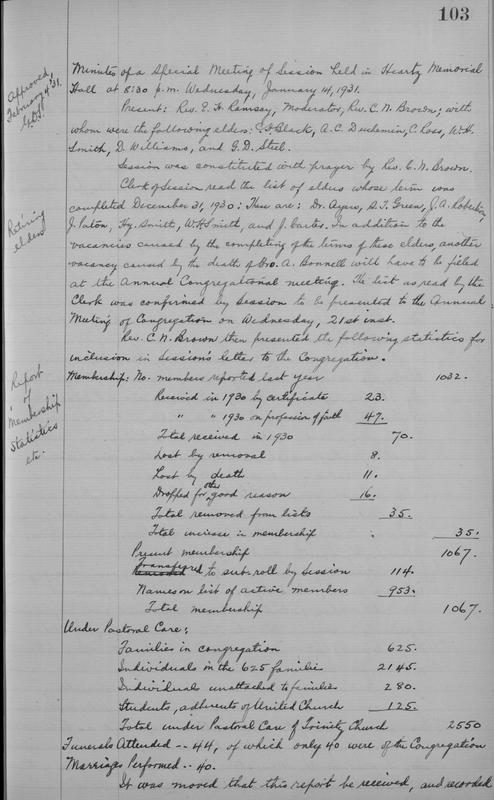 103
Approved,
February 4th '31.
G.D.S.
Minutes of a Special Meeting of Session held in Heartz Memorial
Hall at 8:30 p.m. Wednesday, January 14, 1931.
Present: Rev. E. H. Ramsay, Moderator, Rev. C. N. Brown; with
whom were the following elders: Black, A. C. Duchemin, C. Ross, W. H.
Smith, D. Williams, and G. D. Steel.
Session was constituted with prayer by Rev. C. N. Brown.
Clerk of Session read the list of elders whose term was
completed December 31, 1930: These are: Dr. Ayers, S. T. Green, J. A. Robertson,
Retiring
elders
J. Paton, Hy. Smith, W. H. Smith, and J. Carter. In addition to the
vacancies caused by the completing of the terms of these elders, another
vacancy caused by the death of Bro. A. Bonnell will have to be filled
at the Annual Congregational meeting. The list as read by the
Clerk was confirmed by Session to be presented to the Annual
Meeting of Congregation on Wednesday, 21st inst.
Rev. C. N. Brown then presented the following statistics for
inclusion in Session's letter to the Congregation.
Report
of
Membership
Statistics
etc.
Membership: No. members reported last year 1032.
Received in 1930 by certificate 23.
" " 1930 on profession of faith 47.
Total received in 1930 70.
Lost by removal 8.
Lost by death 11.
Dropped for other good reason 16.
Total removed from lists 35.
Total increase in membership 35.
Present membership 1067.
Transferred to sub-roll by Session 114.
Names on list of active members 953.
Total membership 1067.
Under Pastoral Care:
Families in congregation 625.
Individuals in the 625 families 2145.
Individuals unattached to families 280.
Students, adherents of United Church 125.
Total under Pastoral Care of Trinity Church 2550
Funerals Attended -- 44, of which only 40 were of the Congregation
Marriages Performed -- 40.
It was moved that this report be received, and recorded